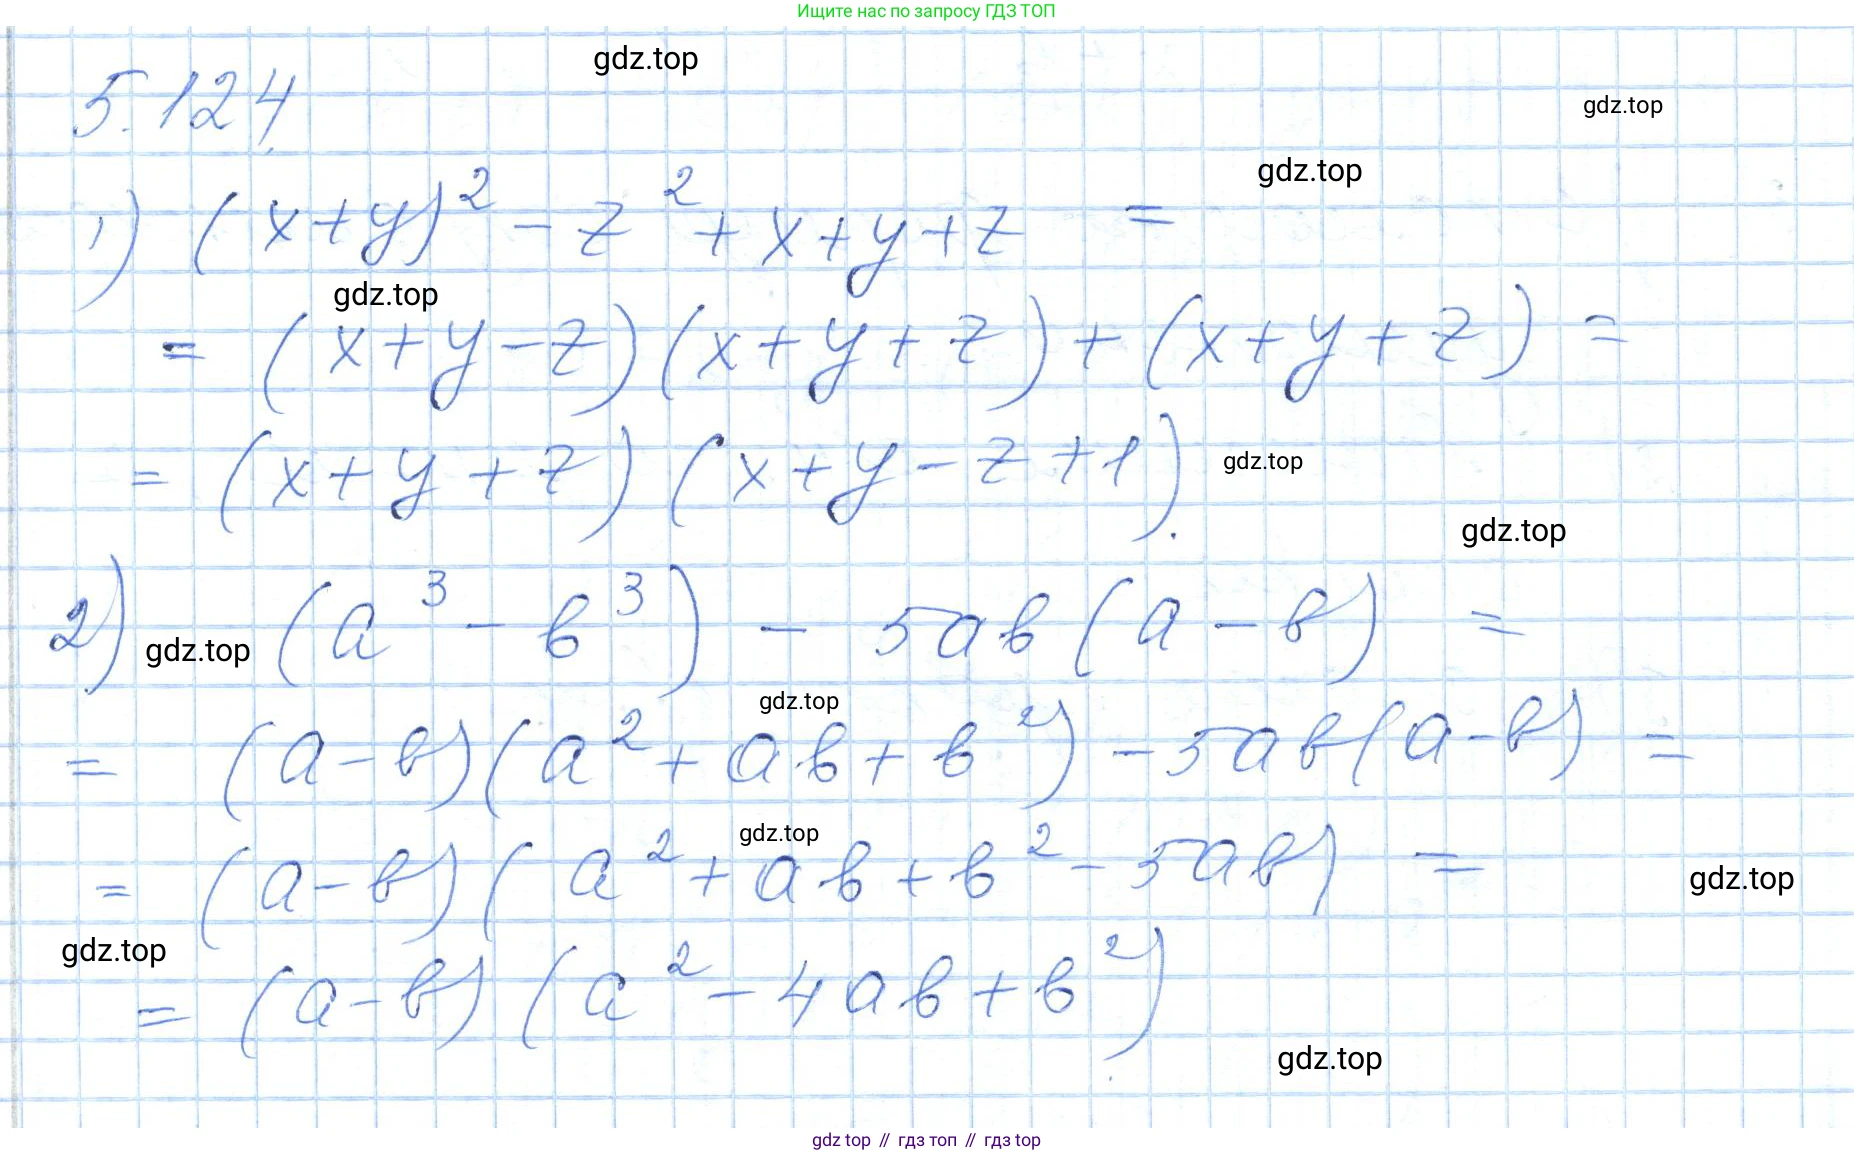 Ищите нас по запросу ГДЗ ТОП
gdz.top
5.124
gdz.top
gdz.top
1) (x+y)² - z² + x+y+z =
gdz.top
= (x+y-z)(x+y+z)+(x+y+z) =
= (x+y+z)(x+y-z+1).
gdz.top
gdz.top
2) (a³ - в³) - 5ав(а-в) =
gdz.top
gdz.top
= (а-в)(а²+ав+в²)-5ав(а-в) =
gdz.top
= (а-в)(а²+ав+в²-5ав) =
gdz.top
gdz.top
= (а-в)(а²-4ав+в²)
gdz.top
gdz top // гдз топ // гдз top